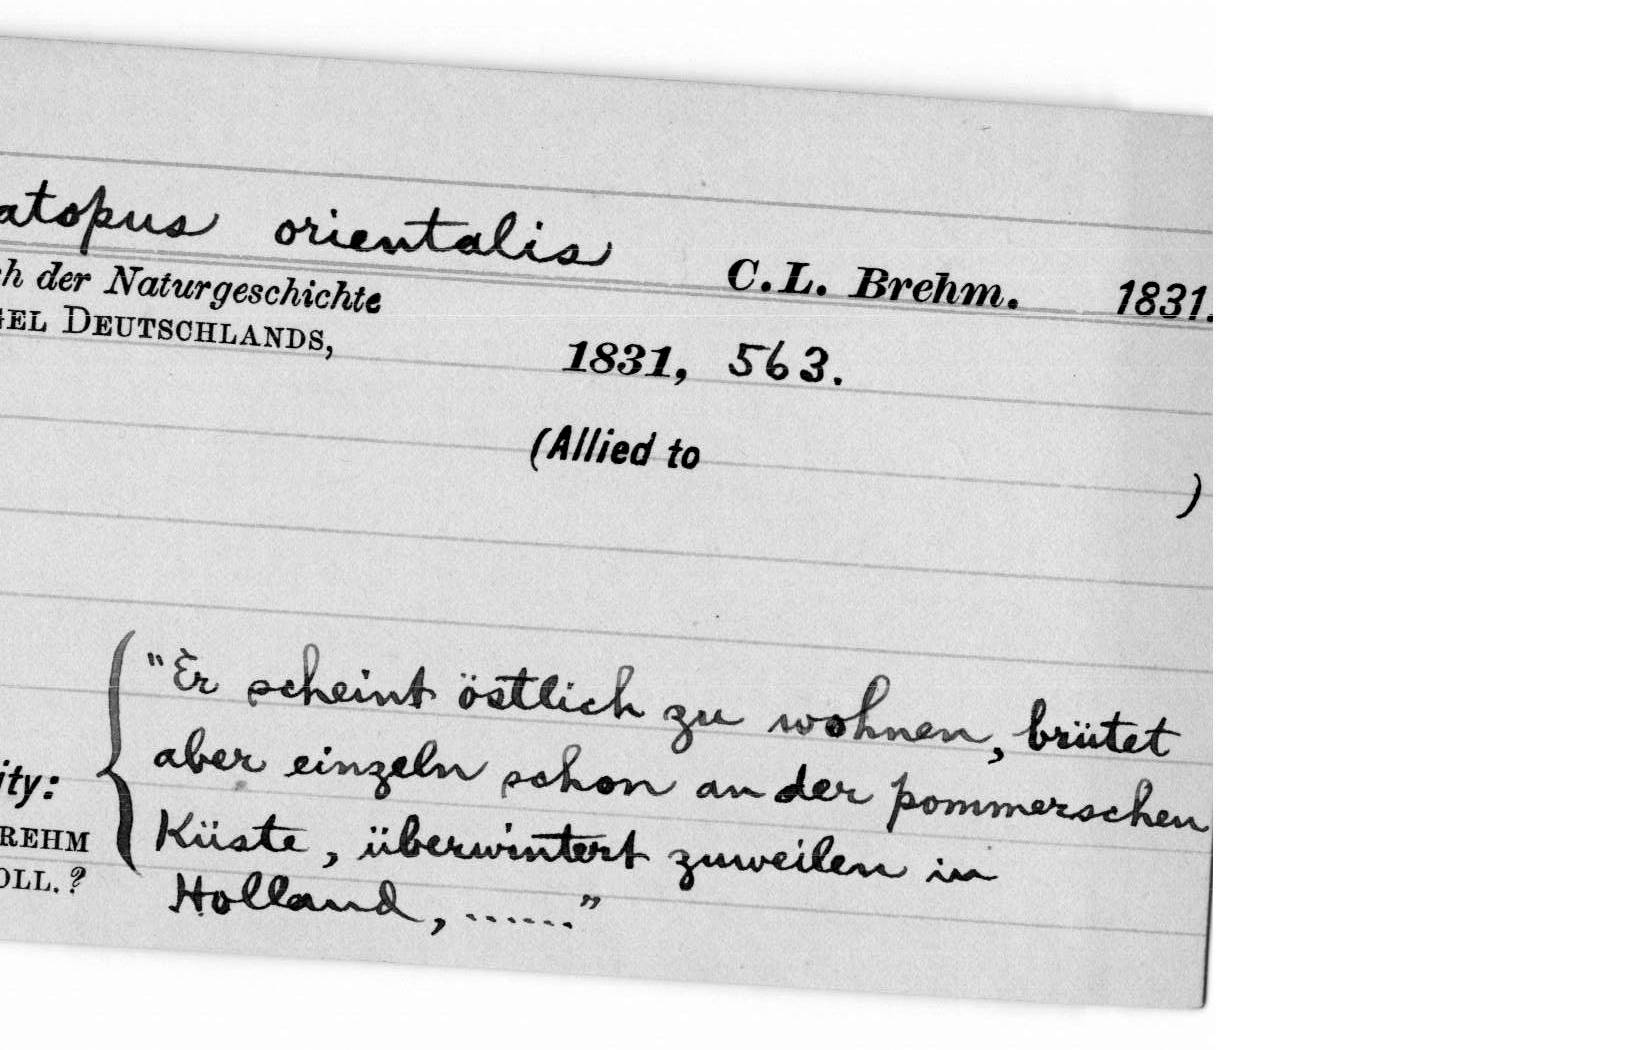 atopus orientalis C.L. Brehm. 1831.
h der Naturgeschichte
GEL DEUTSCHLANDS, 1831, 563.
(Allied to )
"Er scheint östlich zu wohnen, brütet
aber einzeln schon an der pommerschen
ity:
Küste, überwintert zuweilen in
REHM
Holland, ......"
OLL.?